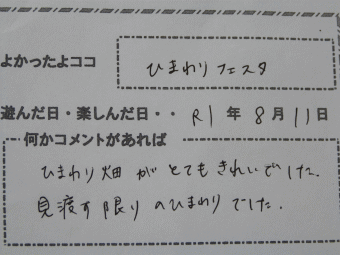 よかったよココ ひまわりフェスタ
遊んだ日・楽しんだ日・・ R1年8月11日
何かコメントがあれば
ひまわり畑がとてもきれいでした。
見渡す限りのひまわりでした。